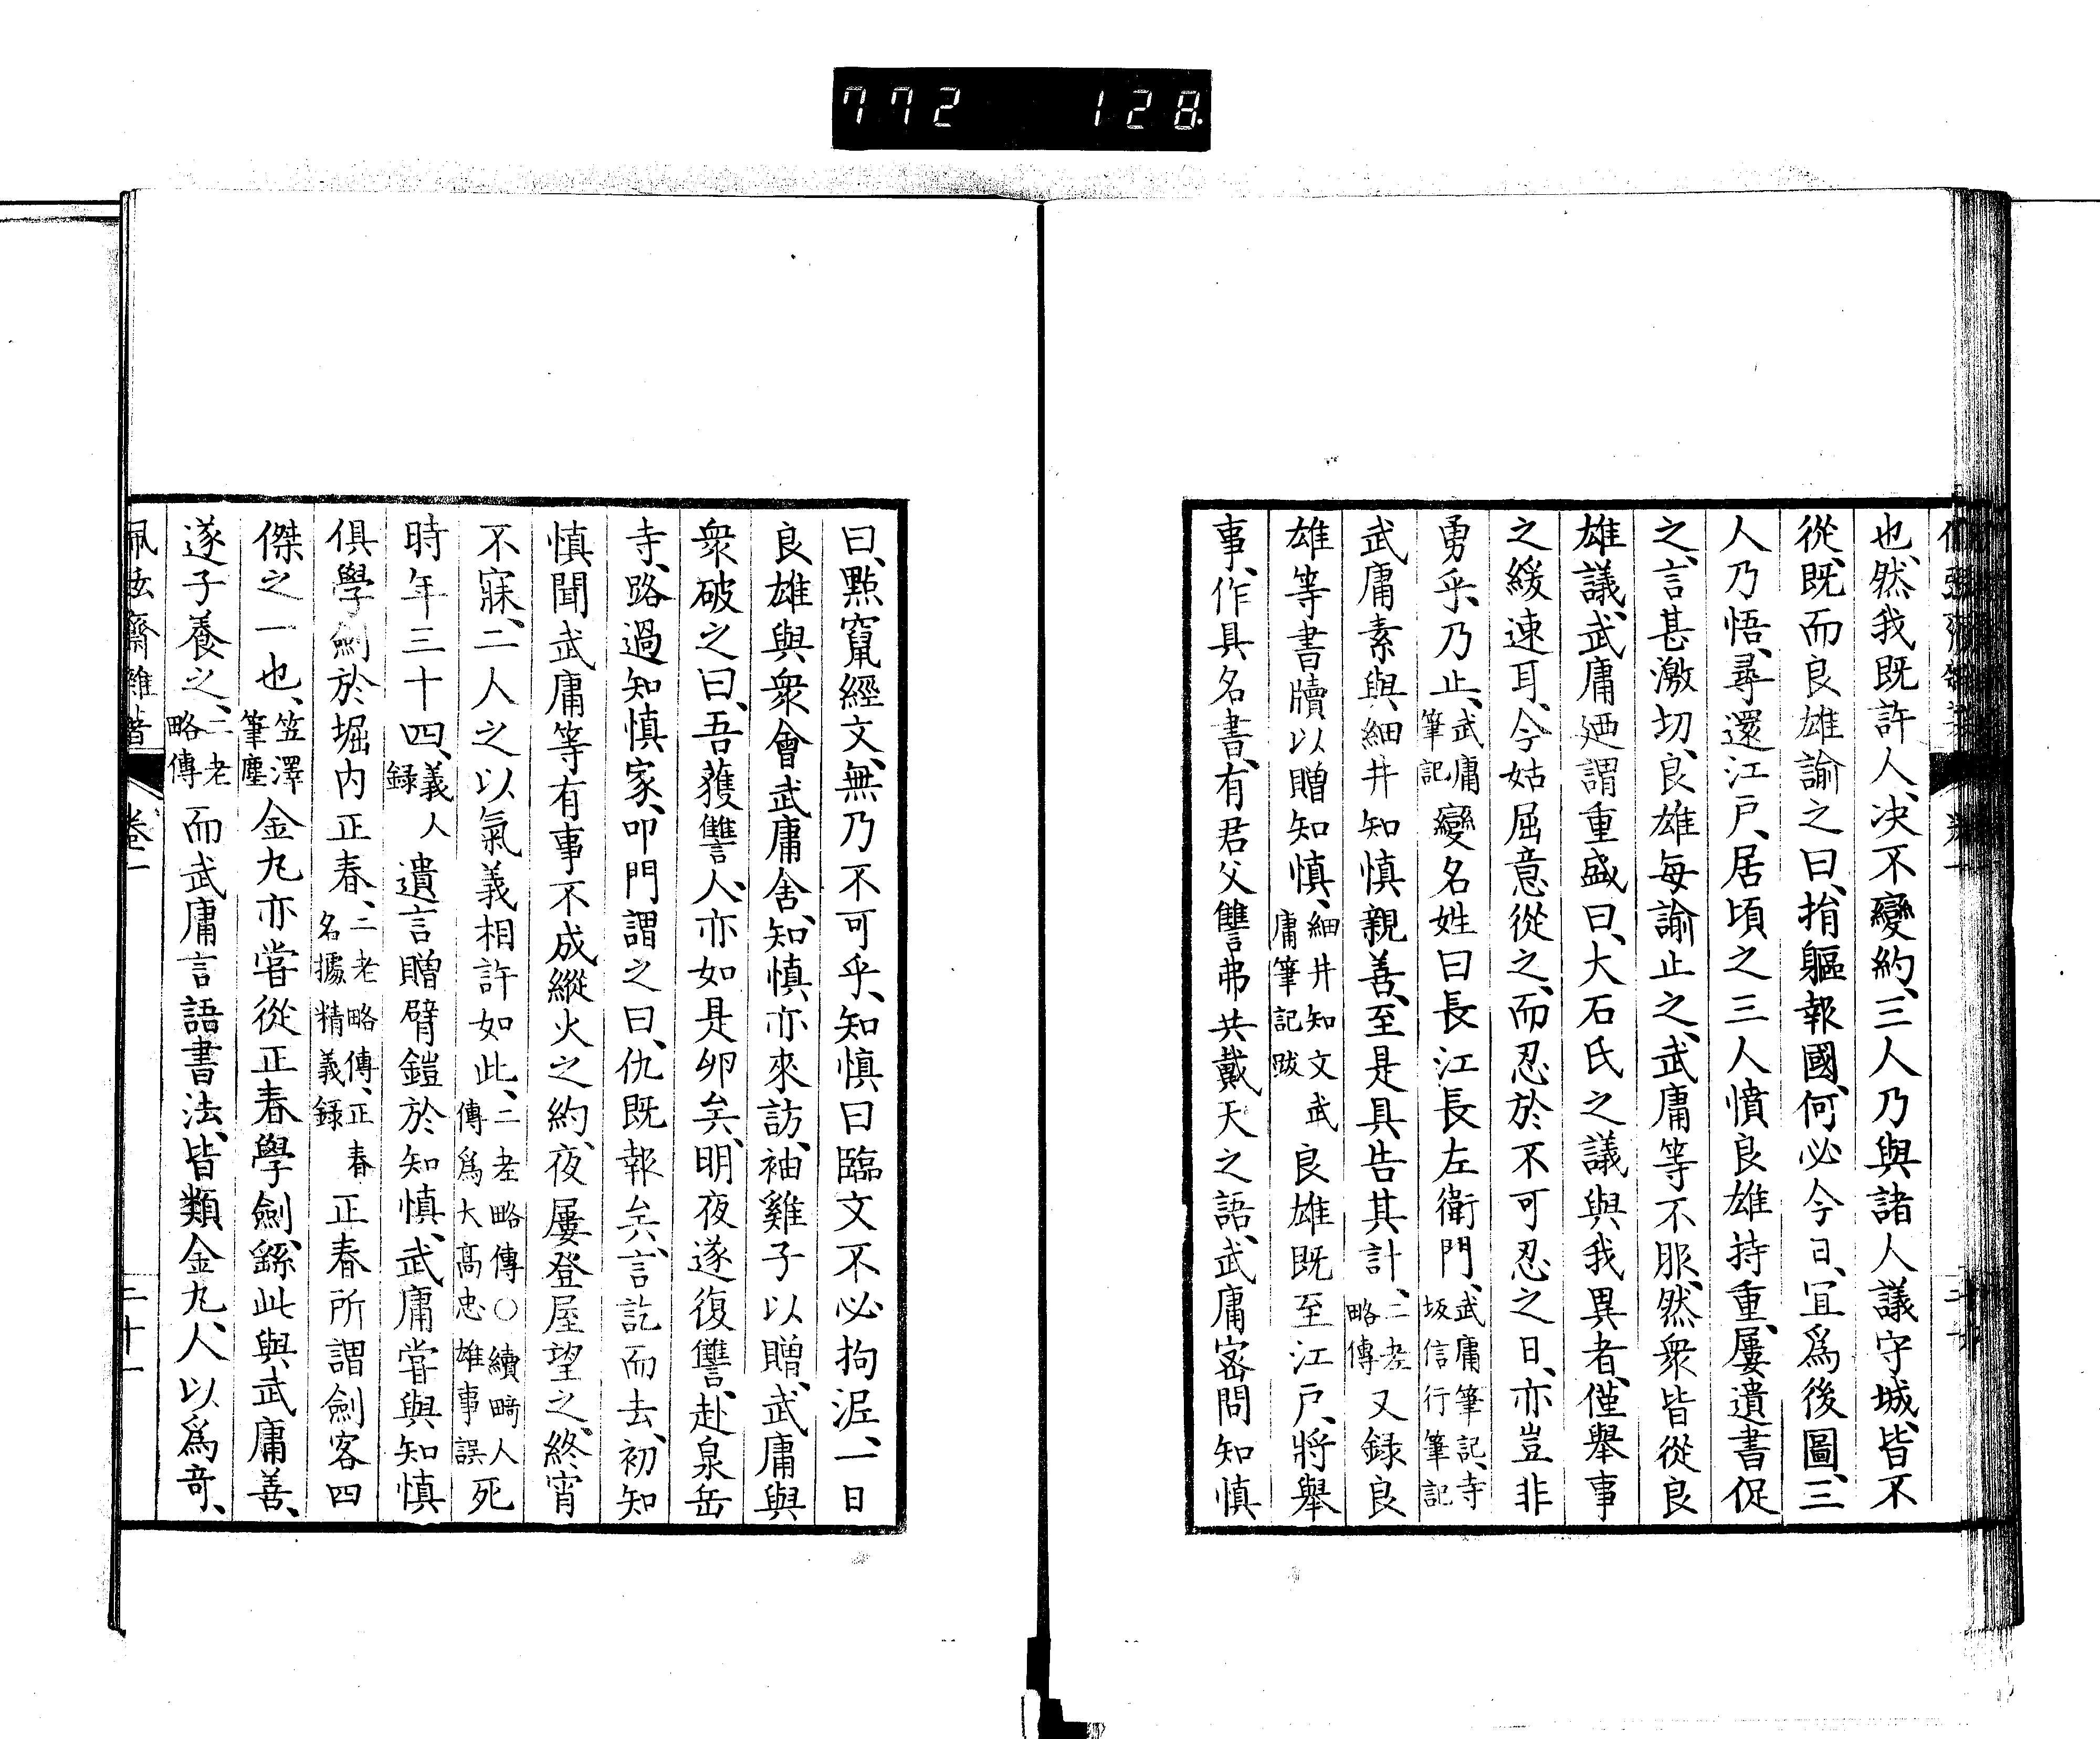 772 128
也、然我既許人、决不變約、三人乃與諸人議守城、皆不
從、既而良雄諭之曰、捐軀報國、何必今日、宜爲後圖、三
人乃悟、尋還江戸、居頃之三人憤良雄持重、屢遺書促
之、言甚激切、良雄每諭止之、武庸等不服、然衆皆從良
雄議、武庸廼謂重盛曰、大石氏之議與我異者、僅舉事
之緩速耳、今姑屈意從之、而忍於不可忍之日、亦豈非
勇乎、乃止、武庸筆記變名姓曰長江長左衛門、武庸筆記、寺坂信行筆記
武庸素與細井知慎親善、至是具告其計、二老略傳又録良
雄等書牘以贈知慎、細井知文武庸筆記跋良雄既至江戸、將舉
事、作具名書、有君父讐弗共戴天之語、武庸密問知慎
曰、點竄經文、無乃不可乎、知慎曰臨文不必拘泥、一日
良雄與衆會武庸舍、知慎亦來訪、袖雞子以贈、武庸與
衆破之曰、吾獲讐人、亦如是卵矣、明夜遂復讐、赴泉岳
寺、路過知慎家、叩門謂之曰、仇既報矣、言訖而去、初知
慎聞武庸等有事不成縱火之約、夜屢登屋望之、終宵
不寐、二人之以氣義相許如此、二老略傳○續畸人傳爲大高忠雄事誤死
時年三十四、義人録遺言贈臂鎧於知慎、武庸嘗與知慎
俱學劍於堀内正春、二老略傳、正春名據精義録正春所謂劍客四
傑之一也、笠澤筆麈金丸亦嘗從正春學劍、繇此與武庸善、
遂子養之、二老略傳而武庸言語書法、皆類金丸、人以爲奇、
齋雜著 卷一 二十一